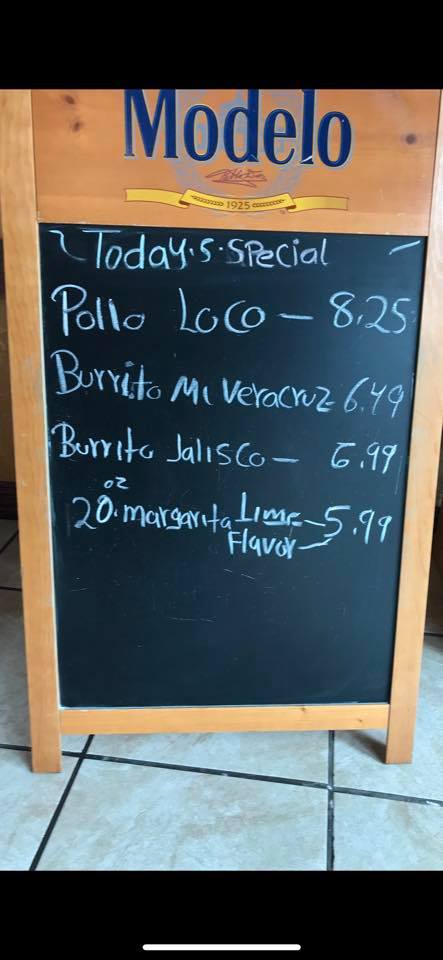 Modelo
1925
Today.s.Special
Pollo Loco - 8.25
Burrito Mi Veracruz 6.49
Burrito Jalisco - 6.99
20.oz margarita Lime - 5.99
Flavor